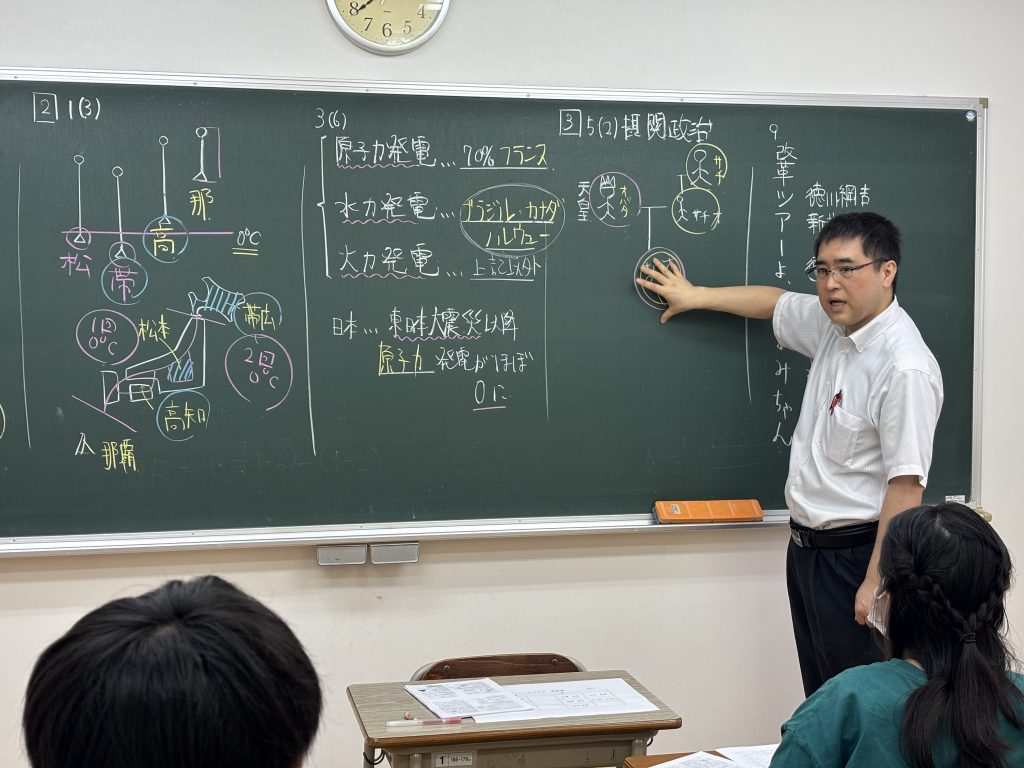 8
7
6
5
4
2 1(3)
那
高
0℃
松
帯
1回
0℃
松本
帯広
2回
0℃
高知
那覇
3(6)
原子力発電… 70% フランス
水力発電… ブラジル・カナダ
ノルウェー
火力発電… 上記以外
日本… 東日本大震災以降
原子力発電がほぼ
0に
3 5(2) 摂関政治
サチ
天皇
オバタ
サチオ
9. 改革ツアーよ
みちゃん
徳川綱吉
新
1